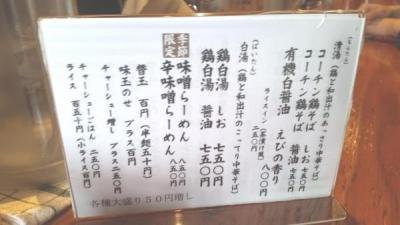 清湯(鶏と和出汁のあっさり中華そば)
コーチン鶏そば しお 七五〇円
コーチン鶏そば 醤油 七五〇円
有機白醤油 えびの香り
八〇〇円
二五〇円
白湯(鶏と和出汁のこってり中華そば)
(ぱいたん)
鶏白湯 しお 七五〇円
鶏白湯 醤油 七五〇円
季節限定
味噌らーめん 八五〇円
辛味噌らーめん 八五〇円
替玉 百円(半麺五十円)
味玉のせ プラス百円
チャーシュー増し プラス二五〇円
チャーシューごはん 二五〇円
ライス 百五十円(小ライス百円)
各種大盛り50円増し